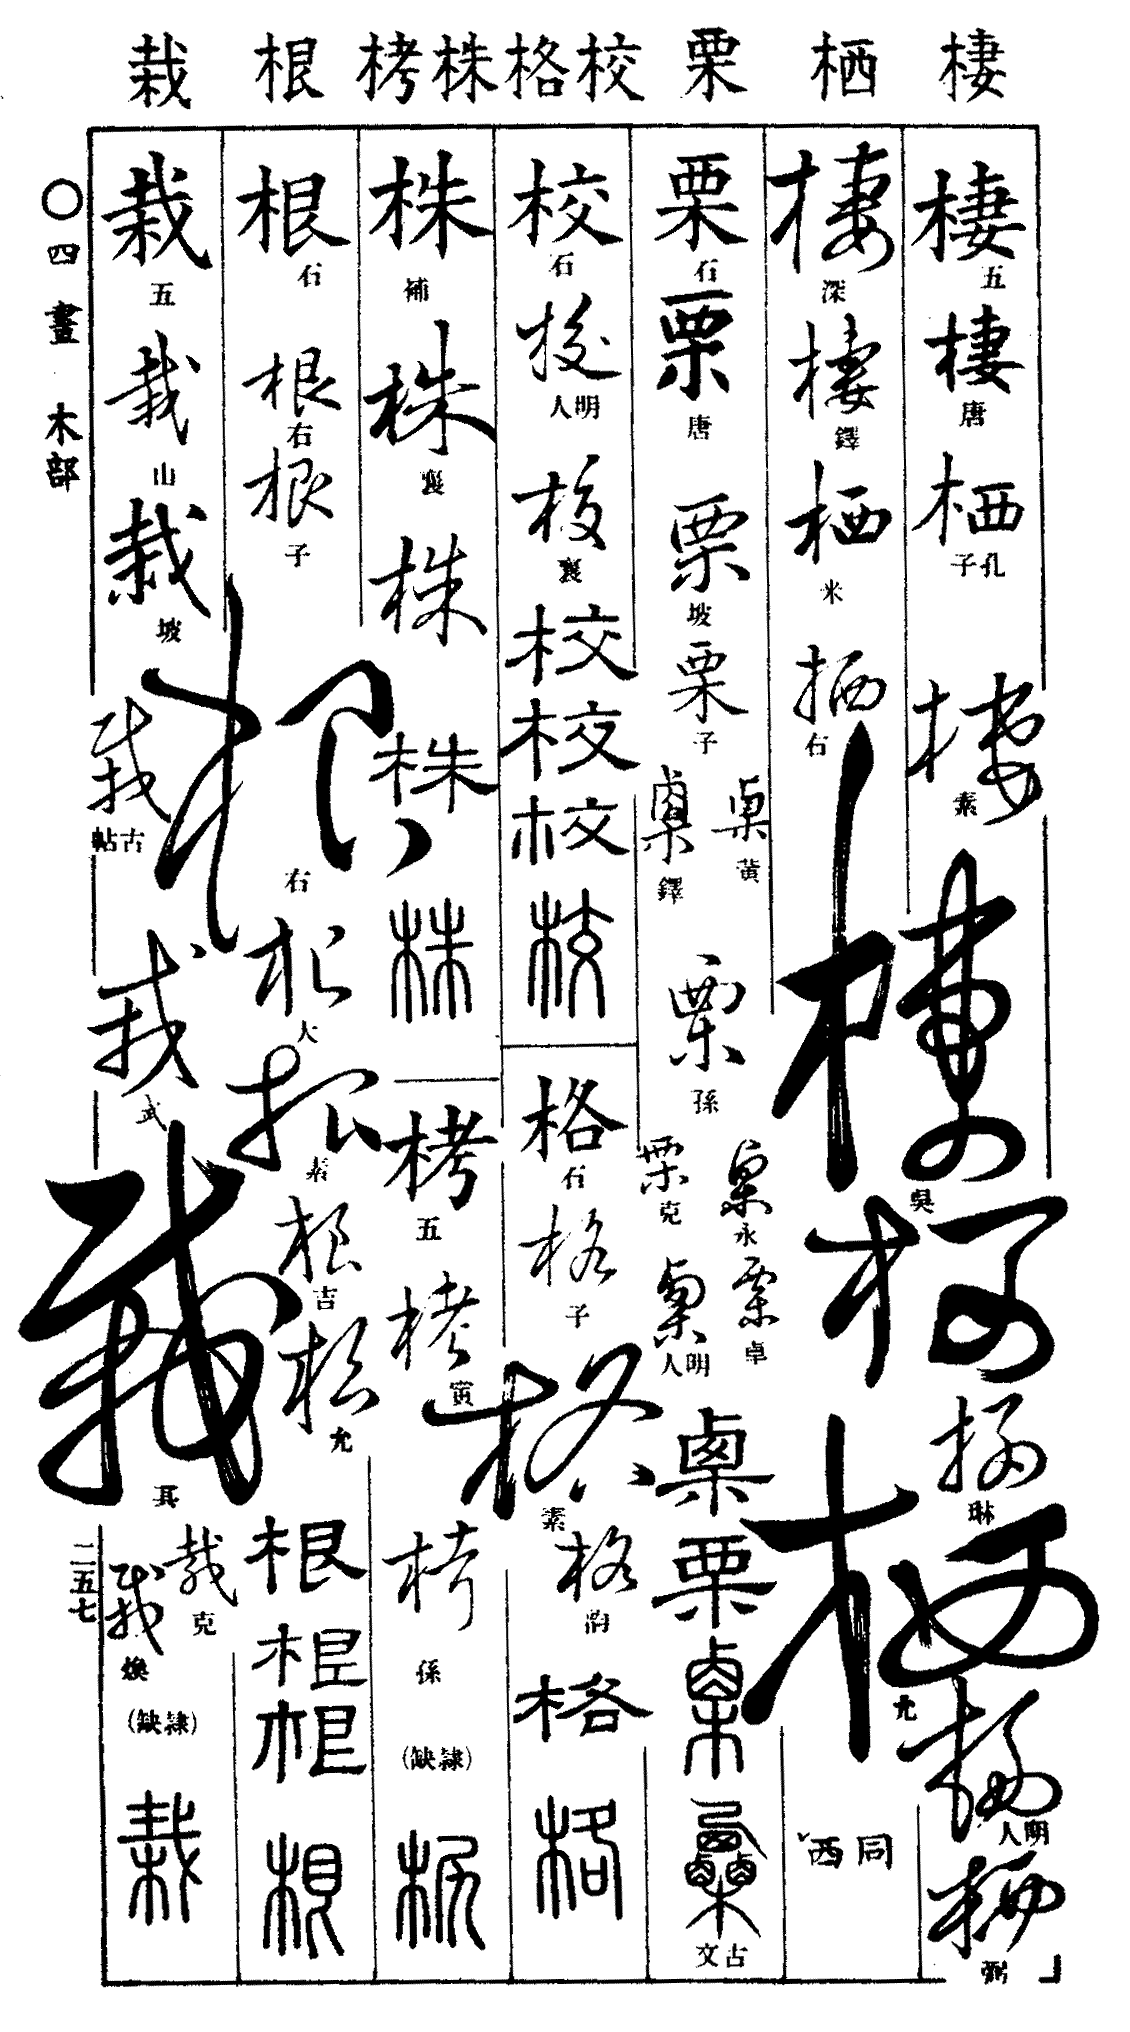 棲 栖 栗 校 格 株 栲 根 栽
棲 五
棲 唐
栖 孔子
棲 素
棲 吳
栖
栖 琳
栖 允
栖 明人
栖 弼
棲 深
棲 鐸
栖 米
栖 右
同西
栗 石
栗 唐
栗 坡
栗 子
栗 黃
栗 鐸
栗 孫
栗 永
栗 克
栗 卓
栗 明人
栗
栗
栗
栗 古文
校 石
校 明人
校 襄
校
校
校
校
格 石
格 子
格 素
格
格
格
株 補
株 襄
株
株
株
栲 五
栲 寅
栲 孫
(隸缺)
栲
根 石
根 右
根 子
根 右
根 大
根 素
根 吉
根 允
根
根
根
根
栽 五
栽 山
栽 坡
栽 古帖
栽 武
栽
栽 克
栽 煥
(隸缺)
栽
○四畫 木部
二五七